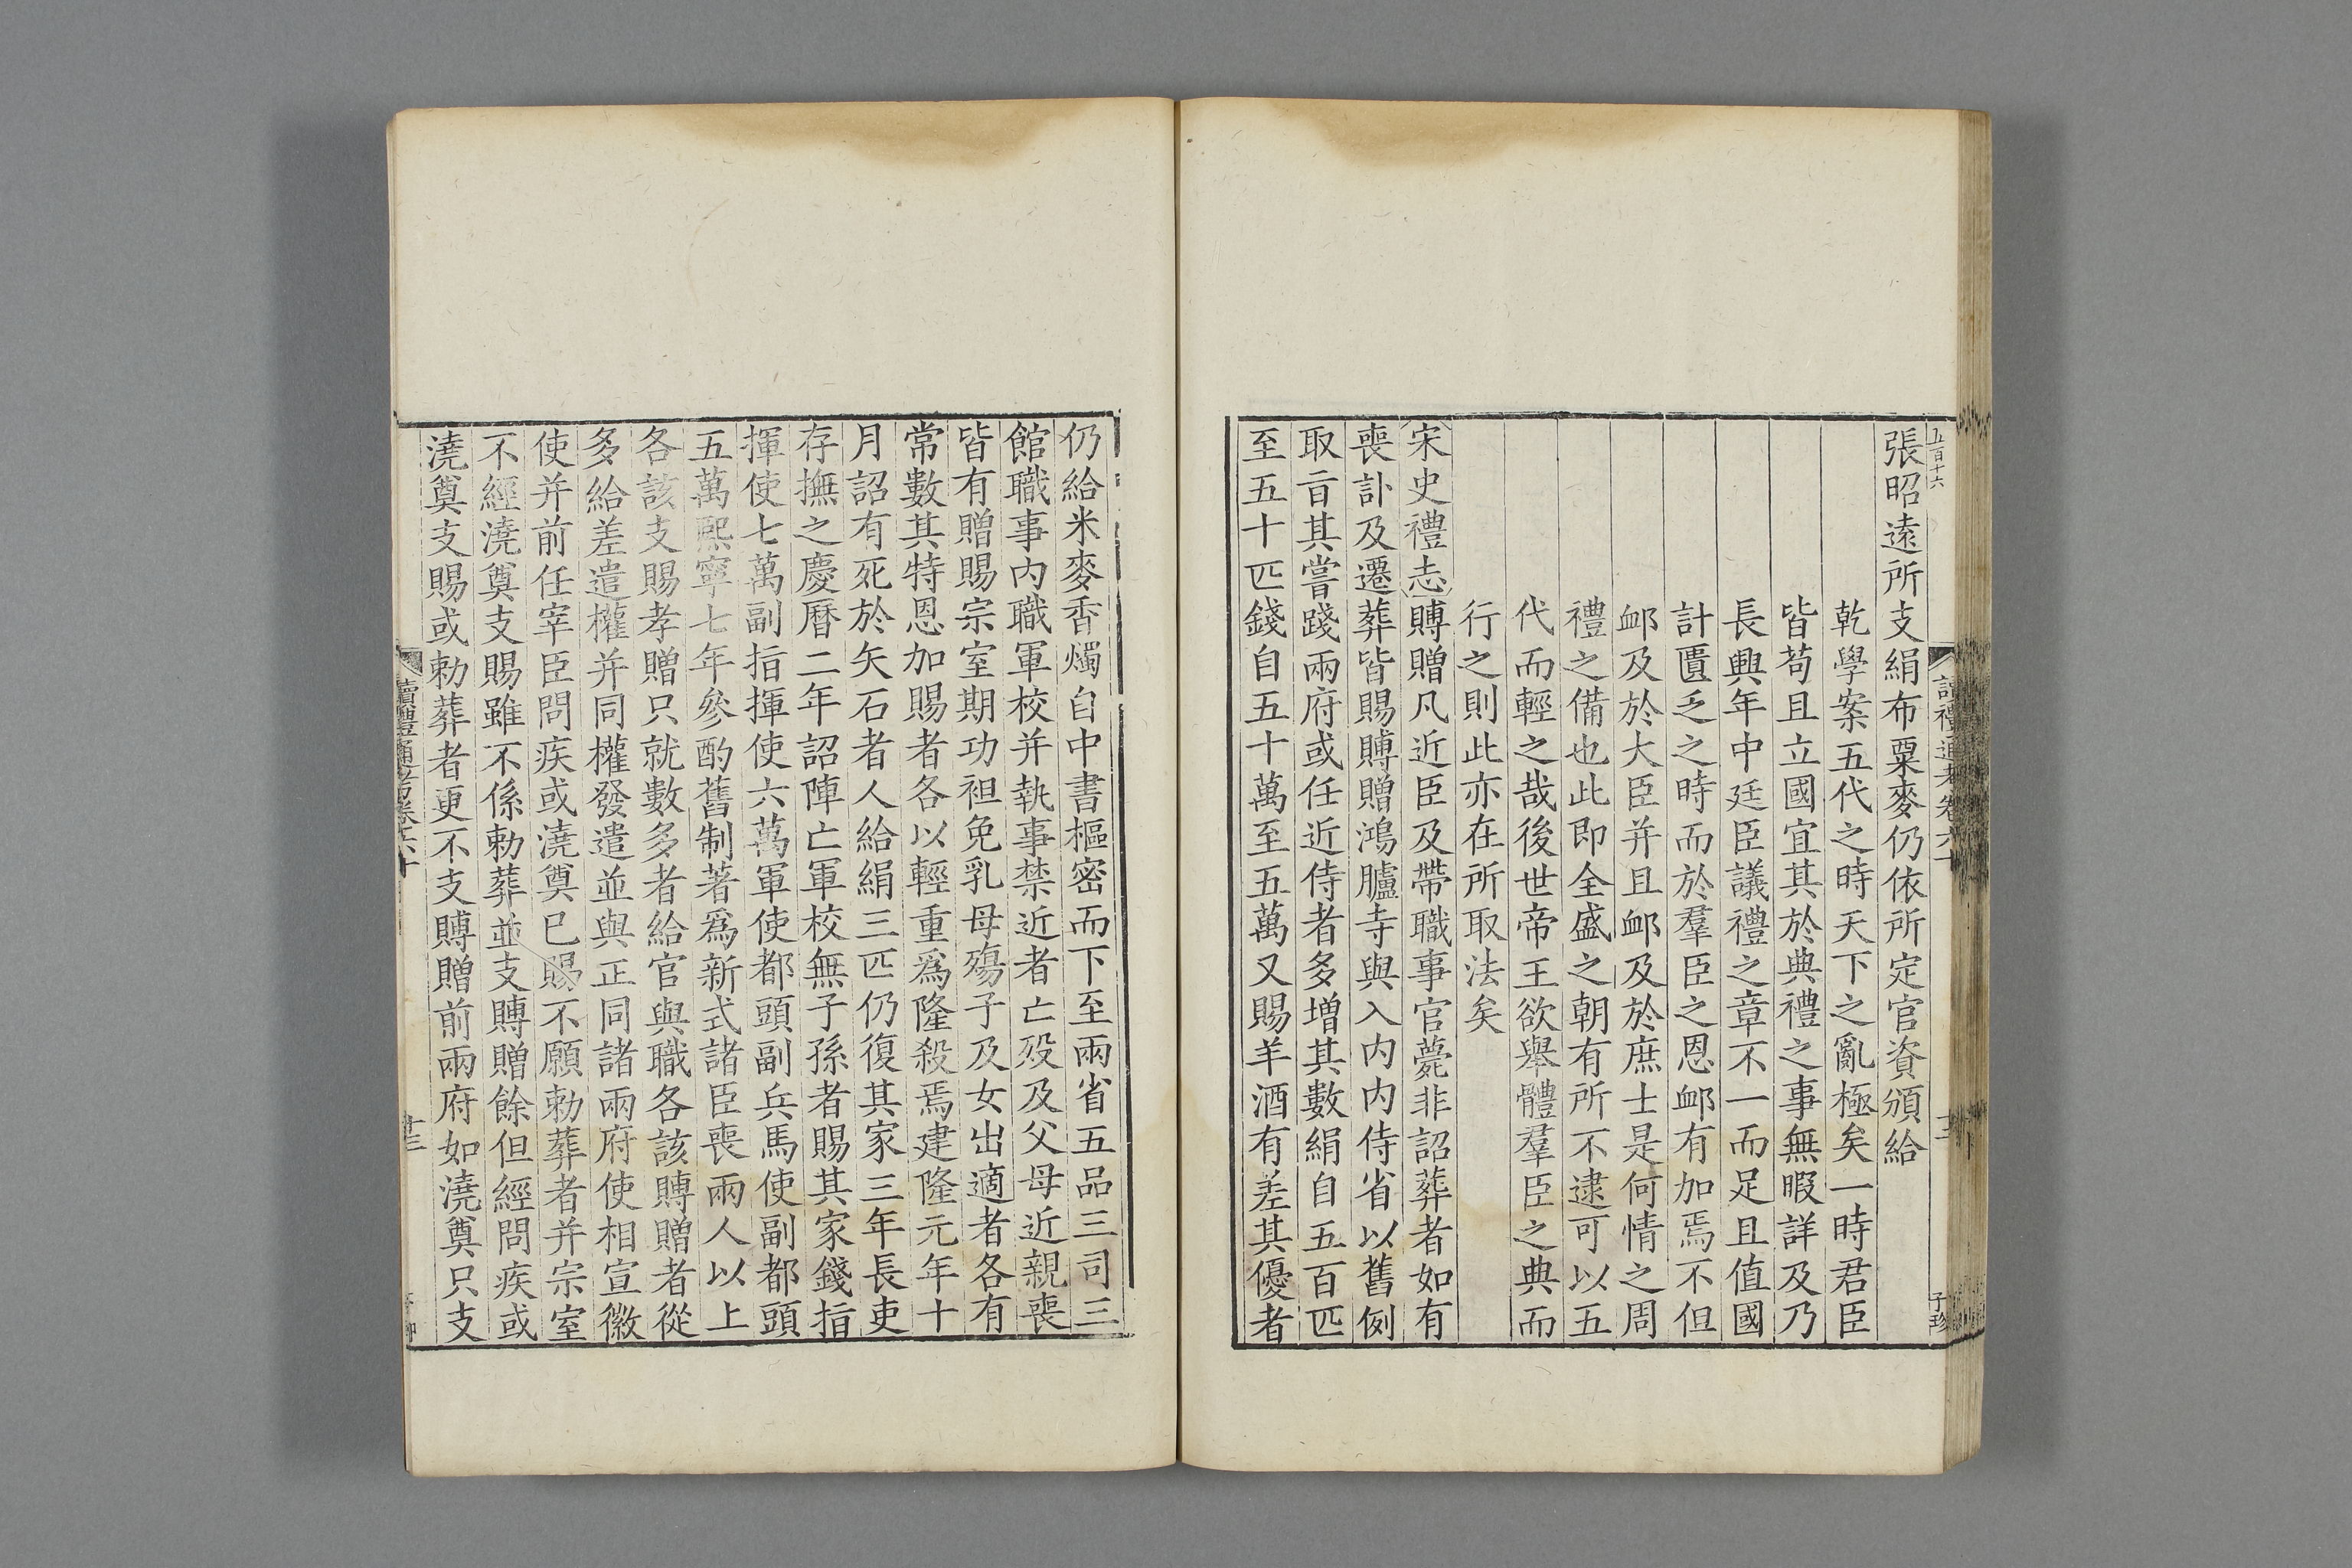 五百十六
讀禮通考卷六十
十二
子珍
張昭遠所支絹布粟麥仍依所定官資頒給
乾學案五代之時天下之亂極矣一時君臣
皆苟且立國宜其於典禮之事無暇詳及乃
長興年中廷臣議禮之章不一而足且值國
計匱乏之時而於羣臣之恩衈有加焉不但
衈及於大臣并且衈及於庶士是何情之周
禮之備也此即全盛之朝有所不逮可以五
代而輕之哉後世帝王欲舉體羣臣之典而
行之則此亦在所取法矣
宋史禮志賻贈凡近臣及帶職事官薨非詔葬者如有
喪訃及遷葬皆賜賻贈鴻臚寺與入内内侍省以舊例
取旨其嘗踐兩府或任近侍者多增其數絹自五百匹
至五十匹錢自五十萬至五萬又賜羊酒有差其優者
仍給米麥香燭自中書樞密而下至兩省五品三司三
館職事内職軍校并執事禁近者亡歿及父母近親喪
皆有贈賜宗室期功袒免乳母殤子及女出適者各有
常數其特恩加賜者各以輕重爲隆殺焉建隆元年十
月詔有死於矢石者人給絹三匹仍復其家三年長吏
存撫之慶曆二年詔陣亡軍校無子孫者賜其家錢指
揮使七萬副指揮使六萬軍使都頭副兵馬使副都頭
五萬熙寧七年參酌舊制著爲新式諸臣喪兩人以上
各該支賜孝贈只就數多者給官與職各該賻贈者從
多給差遣權并同權發遣並與正同諸兩府使相宣徽
使并前任宰臣問疾或澆奠已賜不願勅葬者并宗室
不經澆奠支賜雖不係勅葬並支賻贈餘但經問疾或
澆奠支賜或勅葬者更不支賻贈前兩府如澆奠只支
讀禮通考卷六十
十三